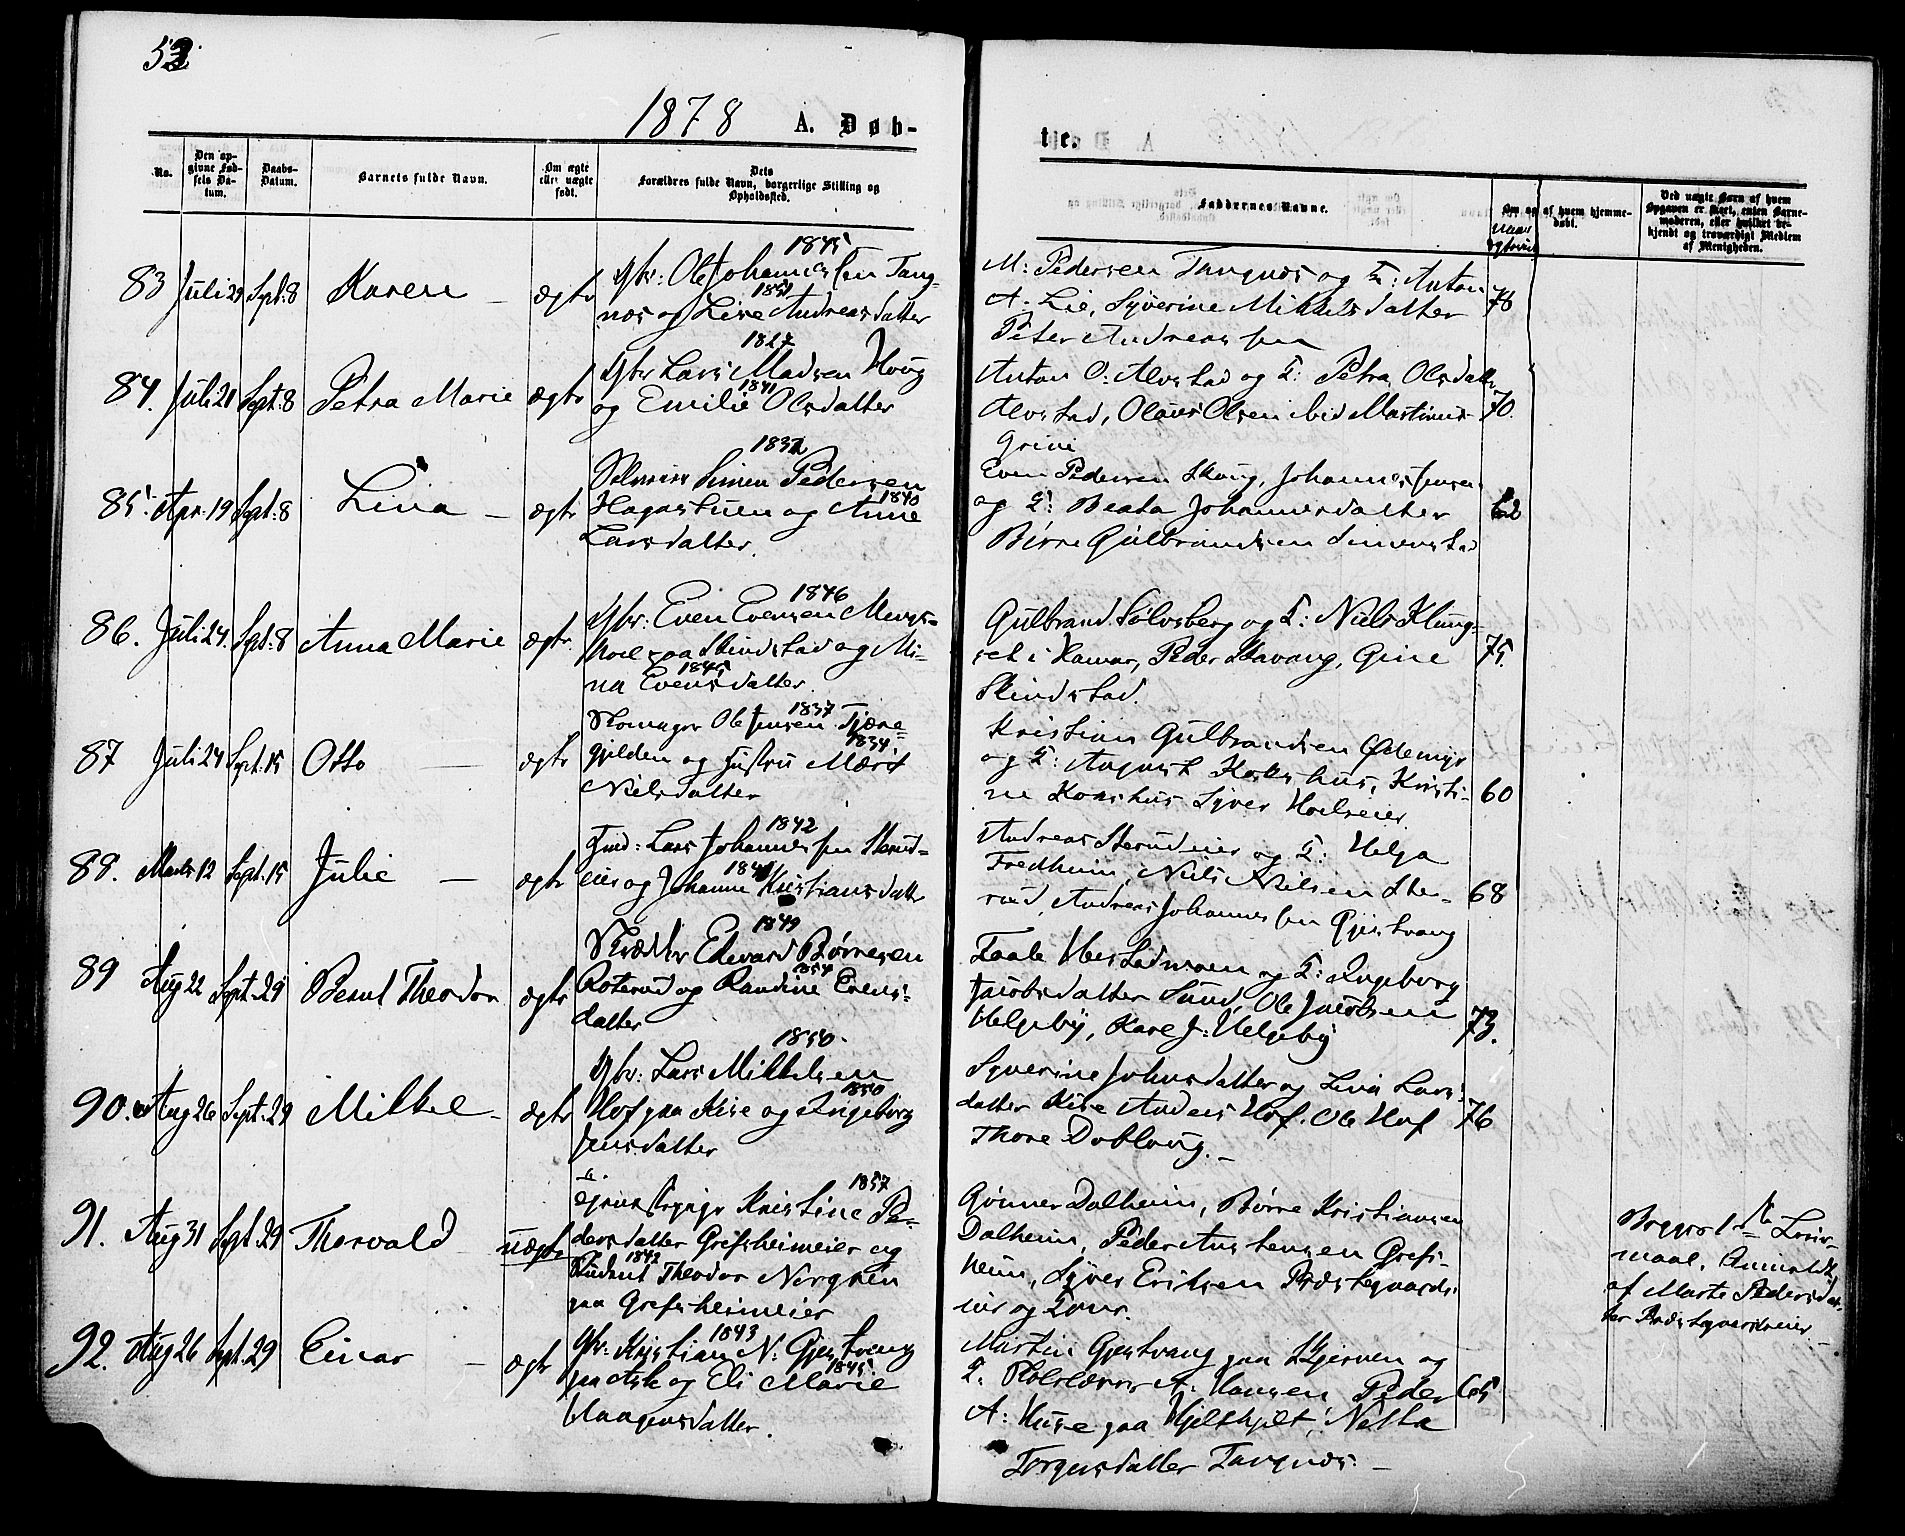 53
1878 A. Døb-
te.
No.
Den op-
givne Fød-
sels Da-
tum.
Daabs-
Datum.
Barnets fulde Navn.
Om ægte
eller uægte
født.
Dets
Forældres fulde Navn, borgerlige Stilling og
Opholdssted.
Faddernes Navne.
Om og af hvem hjemme-
døbt.
Ved uægte Børn af hvem
Opgaven er skeet, enten Barne-
moderen, eller hvilket be-
kjendt og troværdigt Medlem
af Menigheden.
83 Juli 29 Sept: 8 Karen – ægte
1845
Gbr: Ole Johannessen Tang-
1851
næs og Lise Andreasdatter
M: Pedersen Tangnæs og F: Anton
A. Lie, Syverine Mikkelsdatter
Peter Andreassen
78
84. Juli 21 Sept: 8 Petra Marie ægte
1827
Gbr Lars Madsen Houg
1841
og Emilie Olsdatter
Anton O: Alvstad og F: Petra Olsdatter
Alvstad, Olaus Olsen Martinus
Grini
70.
85. Apr. 19 Sept: 8 Lina – ægte
Simen Pedersen
1840
Hagastuen og Anne
Larsdatter.
Even Pedersen Skoug, Johannes Jensen
og F: Beata Johannesdatter
Børre Gulbrandsen Simenstad
62
86. Juli 24. Sept: 8 Anna Marie ægte
1846
Gbr: Even Evensen
paa Skindstad og Mi-
1845
na Evensdatter.
Gulbrand Sølvsberg og F: Niels Klung-
set i Hamar, Peder Stavang, Gine
Skindstad.
75.
87 Juli 24 Sept. 15 Otto – ægte
1837
Skomager Ole Jensen Tjære-
1834.
gjilden og Hustru Marit
Nielsdatter
Kristian Gulbrandsen Ødemyr
og F: August Korshus, Kristi-
ne Korshus Syver Hoelseier.
60
88. Marts 12 Sept. 15 Julie – ægte
1842
Lars Johannessen Sterud-
eie og Johanne Kristiansdatter
Andreas Sterudeier og F: Helga
Fredheim, Niels Nielsen Ste-
rud, Andreas Johannessen Gjestvang
68
89 Aug 22 Sept. 29 Bernt Theodor ægte
1849
Skrædder Edvard Børresen
1854
Roterud og Randine Evens-
datter
og F: Ingeborg
Jacobsdatter Sund, Ole Jacobsen
Helgeby, Kare J: Helgeby
73.
90. Aug 26 Sept. 29 Mikkel – ægte
1850.
Gbr: Lars Mikkelsen
1850
Hof paa Kise og Ingeborg
Jensdatter
Syverine Johnsdatter og Lina Lars-
datter Kise Anders Hof. Ole Hof
Thore Dobloug. –
76
91. Aug 31 Sept. 29 Thorvald uægte
1857
Kristine Pe-
dersdatter Grefsheimeier og
1842
Student Theodor Norgren
paa Grefsheimeier
Gunner Dalheim, Børre Kristiansen
Dalheim, Peder Austensen Grefs-
heim, Syver Eriksen Præstegaards-
eie og Kone.
Begges 1ste Leier-
maal. Anmeldt
af Marte Pedersdat-
ter Præstegaardseier. –
92. Aug 26 Sept. 29 Einar – ægte
1843
Gbr. Kristian N: Gjestvang
1845
paa Ask og Eli Marie
Haagensdatter.
Martin Gjestvang paa Skjerven og
F. A: Hansen Peder
A: Huse paa Hjelthjelt, Netta
Torgersdatter Tangnæs. –
65